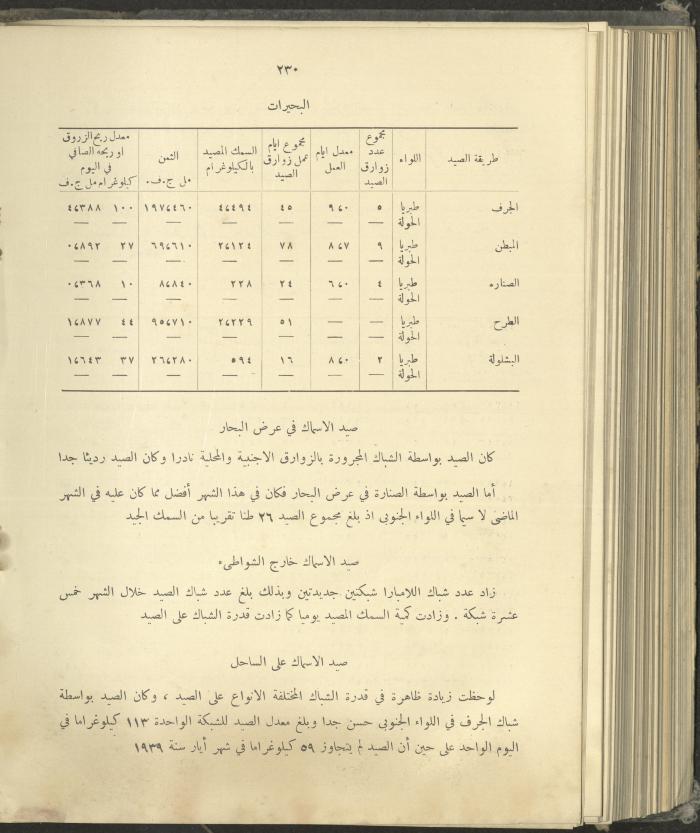 ٢٣٠
البحيرات
طريقة الصيد | اللواء | مجموع عدد زوارق الصيد | معدل ايام العمل | مجموع ايام عمل زوارق الصيد | السمك المصيد بالكيلوغرام | الثمن مل ج.ف. | معدل ربح الزروق او ربحة الصافي في اليوم كيلوغرام مل ج.ف
الجرف | طبريا | ٥ | ٩٬٠ | ٤٥ | ٤٬٤٩٤ | ١٩٧٬٤٦٠ | ١٠٠ | ٤٬٣٨٨
الحولة | — | — | — | — | — | — | —
المبطن | طبريا | ٩ | ٨٬٧ | ٧٨ | ٢٬١٢٤ | ٦٩٬٦١٠ | ٢٧ | ٠٬٨٩٢
الحولة | — | — | — | — | — | — | —
الصناره | طبريا | ٤ | ٦٬٠ | ٢٤ | ٢٢٨ | ٨٬٨٤٠ | ١٠ | ٠٬٣٦٨
الحولة | — | — | — | — | — | — | —
الطرح | طبريا | — | — | ٥١ | ٢٬٢٢٩ | ٩٥٬٧١٠ | ٤٤ | ١٬٨٧٧
الحولة | — | — | — | — | — | — | —
البشلولة | طبريا | ٢ | ٨٬٠ | ١٦ | ٥٩٤ | ٢٦٬٢٨٠ | ٣٧ | ١٬٦٤٣
الحولة | — | — | — | — | — | — | —
صيد الاسماك في عرض البحار
كان الصيد بواسطة الشباك المجرورة بالزوارق الاجنبية والمحلية نادرا وكان الصيد رديئا جدا
أما الصيد بواسطة الصنارة في عرض البحار فكان في هذا الشهر أفضل مما كان عليه في الشهر
الماضي لا سيما في اللواء الجنوبى اذ بلغ مجموع الصيد ٢٦ طنا تقريبا من السمك الجيد
صيد الاسماك خارج الشواطىء
زاد عدد شباك اللامبارا شبكتين جديدتين وبذلك بلغ عدد شباك الصيد خلال الشهر خمس
عشرة شبكة . وزادت كمية السمك المصيد يوميا كما زادت قدرة الشباك على الصيد
صيد الاسماك على الساحل
لوحظت زيادة ظاهرة في قدرة الشباك المختلفة الانواع على الصيد ، وكان الصيد بواسطة
شباك الجرف في اللواء الجنوبى حسن جدا وبلغ معدل الصيد للشبكة الواحدة ١١٣ كيلوغراما في
اليوم الواحد على حين أن الصيد لم يتجاوز ٥٩ كيلوغراما في شهر أيار سنة ١٩٣٩